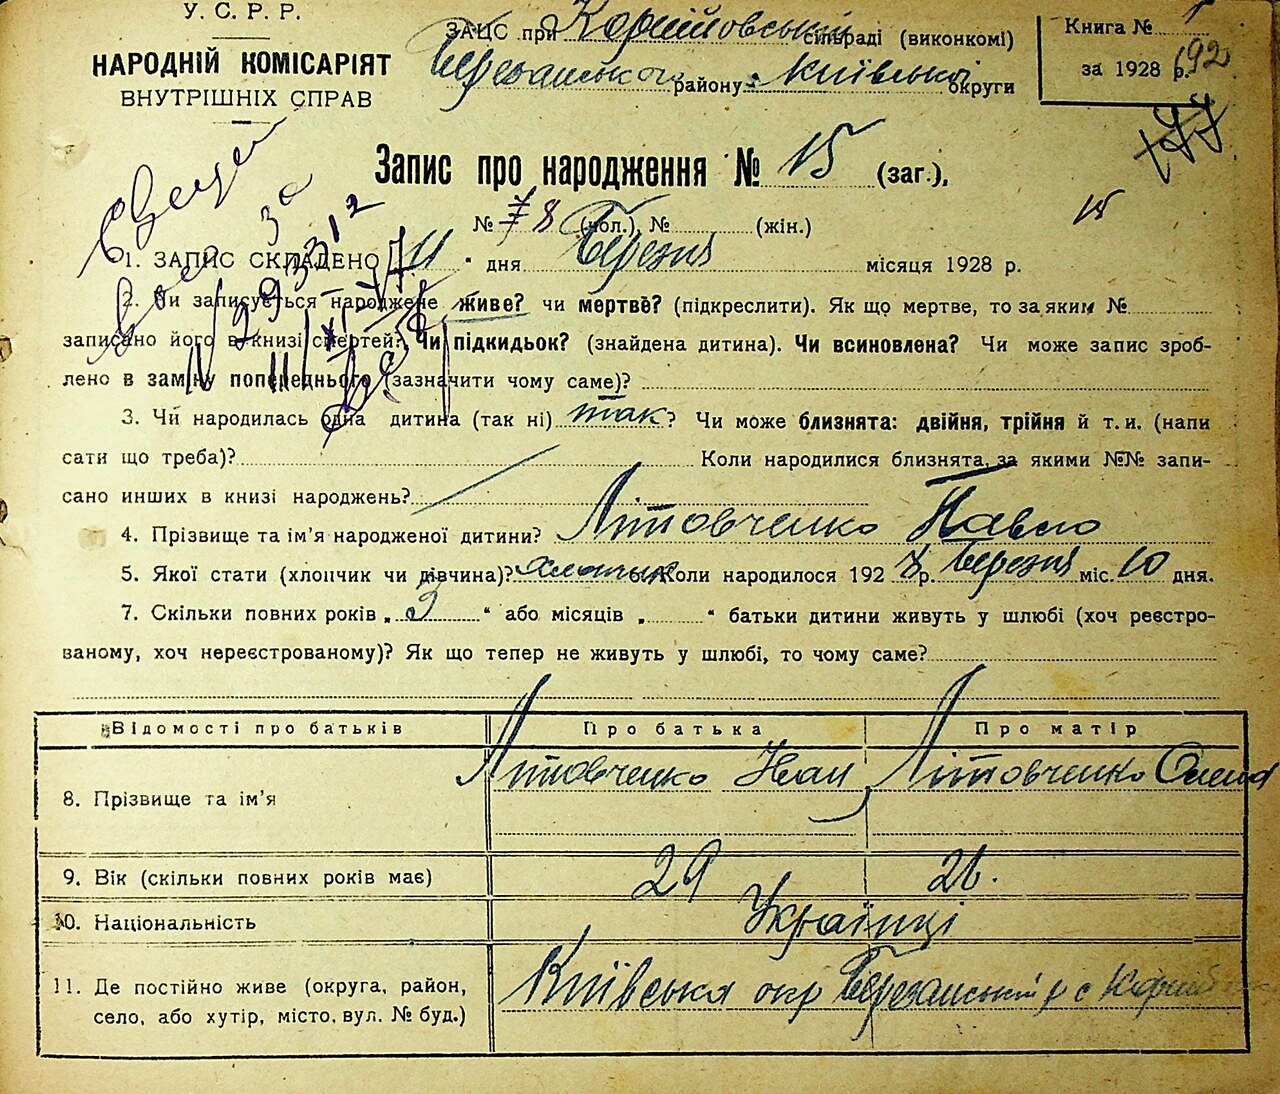 У. С. Р. Р.
НАРОДНІЙ КОМІСАРІЯТ
ВНУТРІШНІХ СПРАВ
ЗАЦС при сільраді (виконкомі)
Березанського району Київської округи
Книга №
за 1928 р.
192
177
Запис про народження № 15 (заг.),
№ 7 8 (чол.), № (жін.)
15
1. ЗАПИС СКЛАДЕНО „ 11 “ дня Березня місяця 1928 р.
2. Чи записується народжене живе? чи мертве? (підкреслити). Як що мертве, то за яким №
записано його в книзі смертей? Чи підкидьок? (знайдена дитина). Чи всиновлена? Чи може запис зроб-
лено в заміну попереднього (зазначити чому саме)?
3. Чи народилась одна дитина (так ні) так ? Чи може близнята: двійня, трійня й т. и. (напи
сати що треба)? Коли народилися близнята, за якими №№ запи-
сано инших в книзі народжень?
4. Прізвище та ім’я народженої дитини? Літовченко Павло
5. Якої стати (хлопчик чи дівчина)? хлопчик Коли народилося 192 8 р. березня міс. 10 дня.
7. Скільки повних років „ 3 “ або місяців „ “ батьки дитини живуть у шлюбі (хоч реєстро-
ваному, хоч нереєстрованому)? Як що тепер не живуть у шлюбі, то чому саме?
Відомості про батьків Про батька Про матір
8. Прізвище та ім’я Літовченко Іван Літовченко
9. Вік (скільки повних років має) 29 26.
10. Національність Українці
11. Де постійно живе (округа, район, Київська окр Березанський р с
село, або хутір, місто, вул. № буд.)